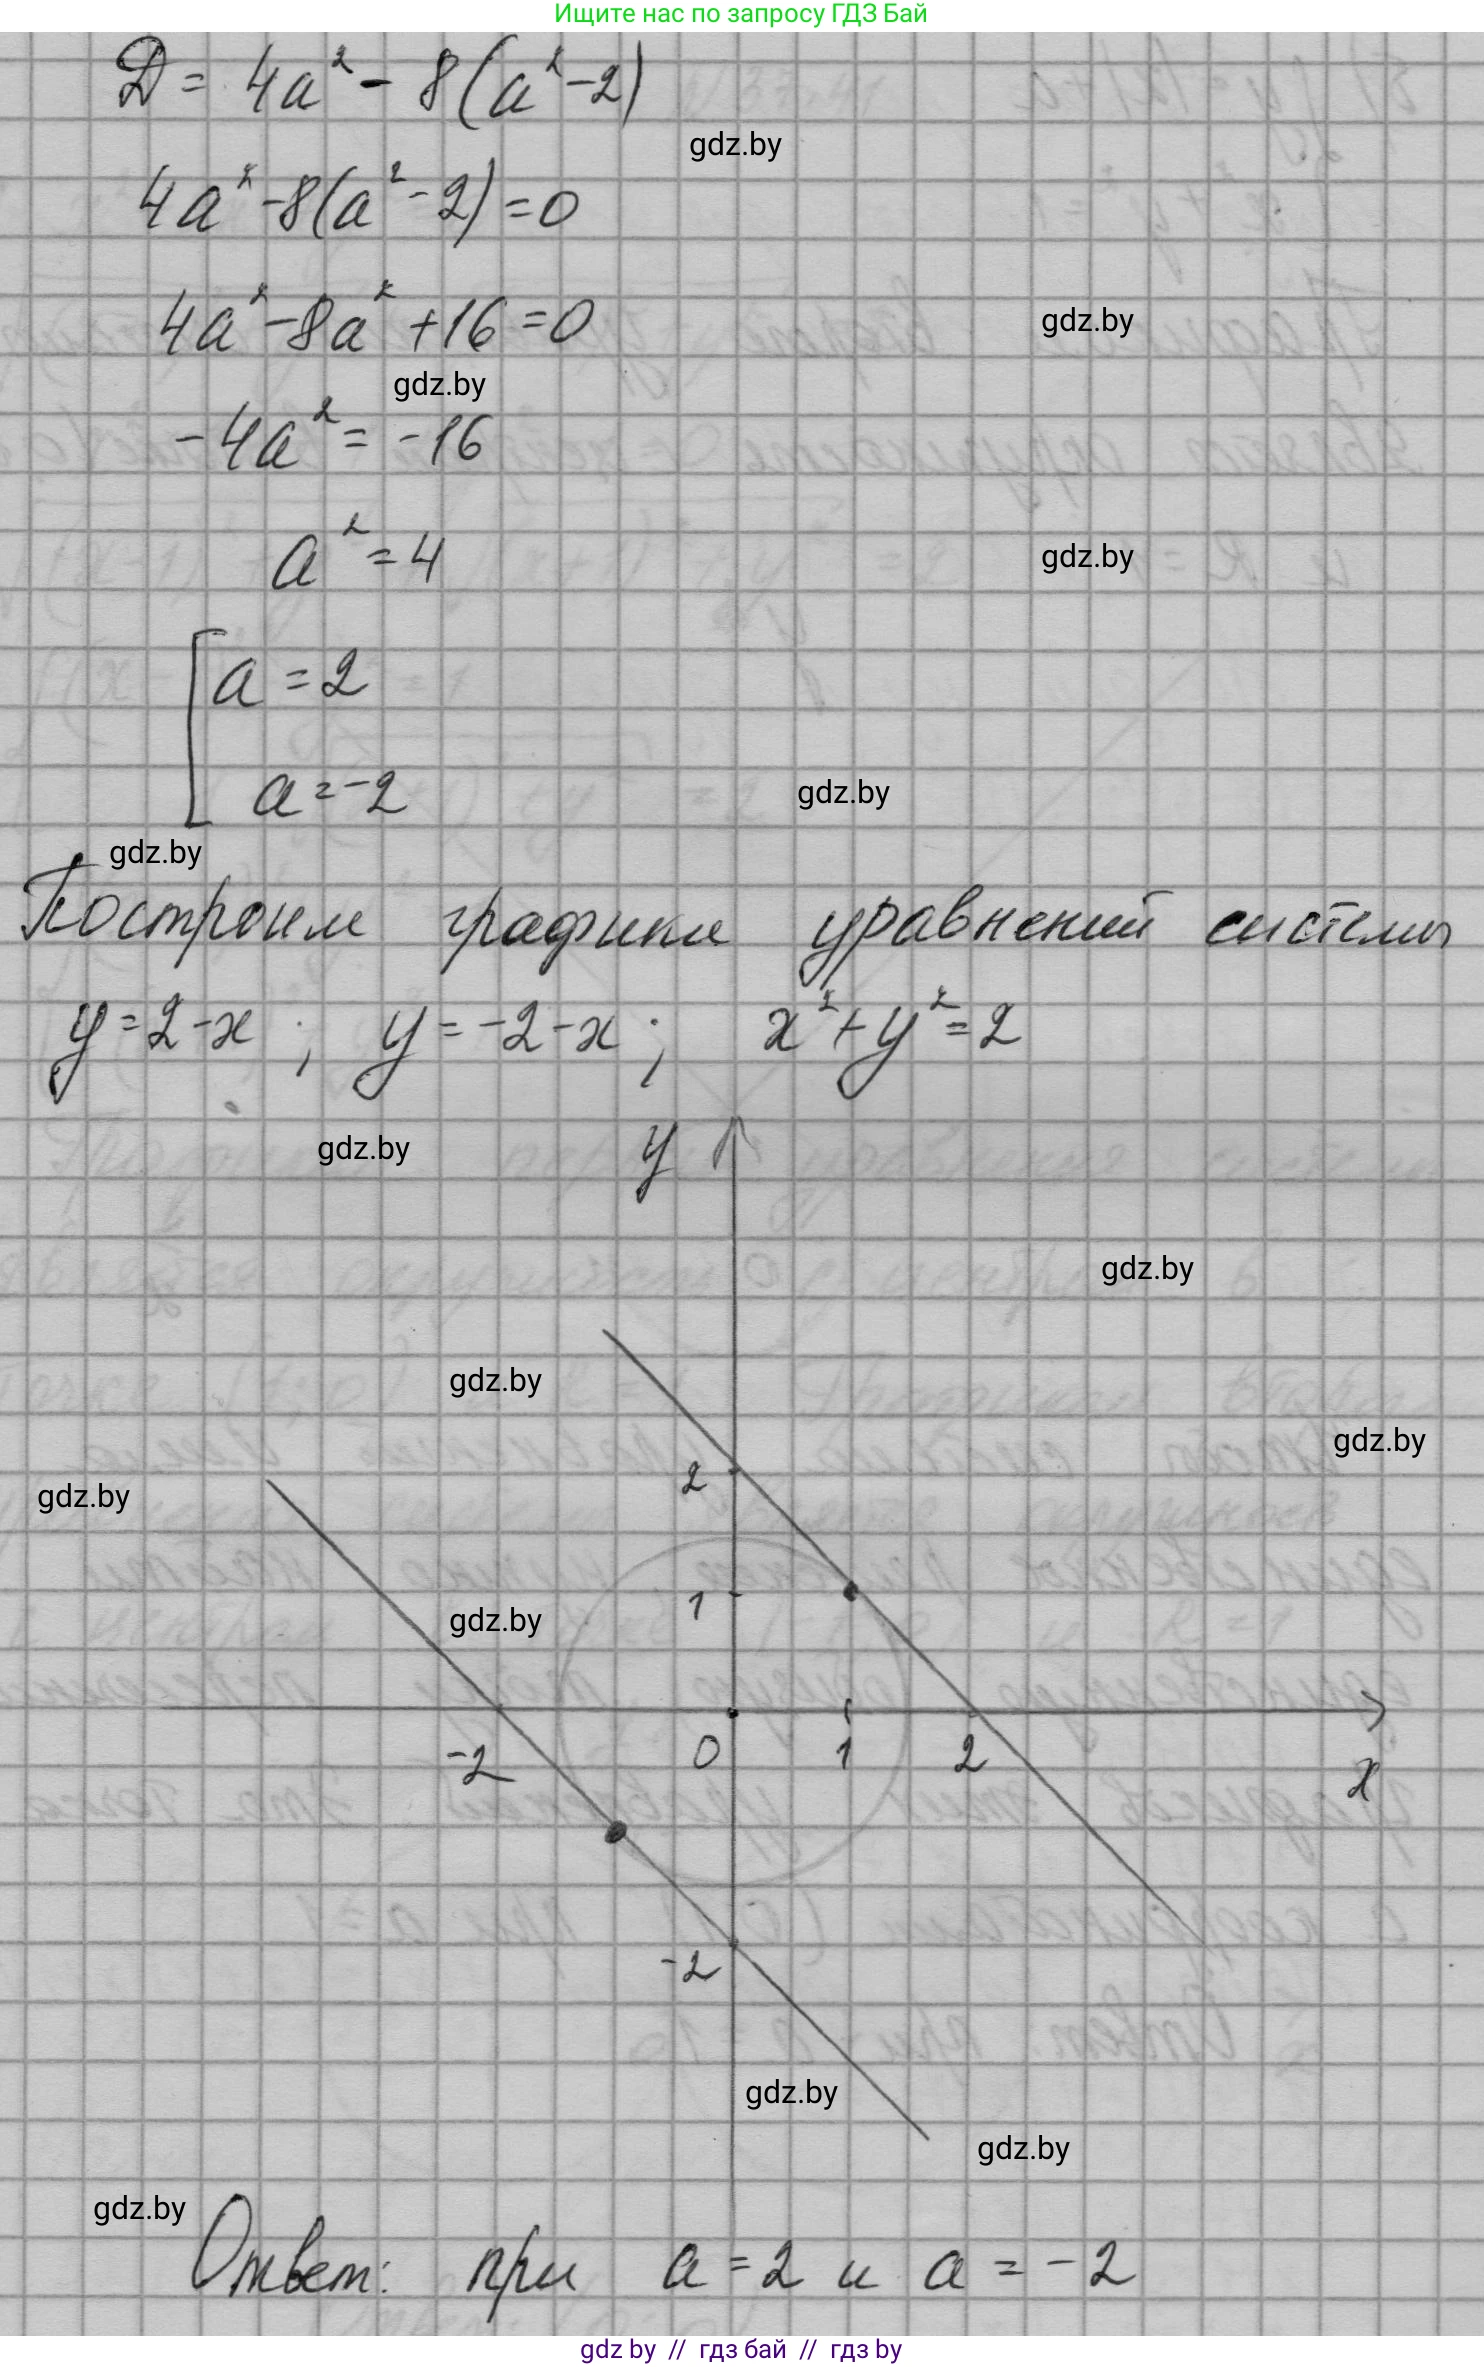 Ищите нас по запросу ГДЗ Бай
D = 4a² - 8(a² - 2)
gdz.by
4a² - 8(a² - 2) = 0
4a² - 8a² + 16 = 0
gdz.by
gdz.by
-4a² = -16
a² = 4
gdz.by
a = 2
a = -2
gdz.by
gdz.by
Построим графики уравнений системы
y = 2 - x ; y = -2 - x ; x² + y² = 2
gdz.by
y
gdz.by
gdz.by
gdz.by
2
gdz.by
1
gdz.by
-2
0
1
2
x
-2
gdz.by
gdz.by
gdz.by
Ответ: при a = 2 и a = -2
gdz by // гдз бай // гдз by